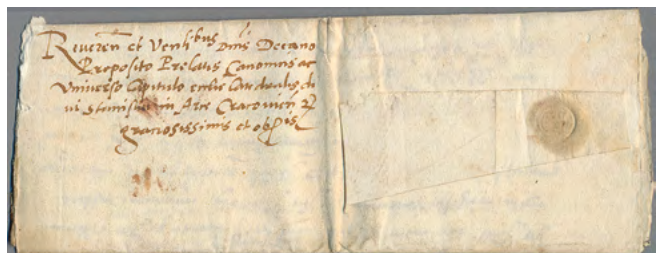 Reueren et Venlibus Dnis Decano
Preposito Prelatis Canonicis ac
Vniuerso Capitulo ecclie Cathedralis di
ui Stanislai in Arce Cracouien
graciosissimis et